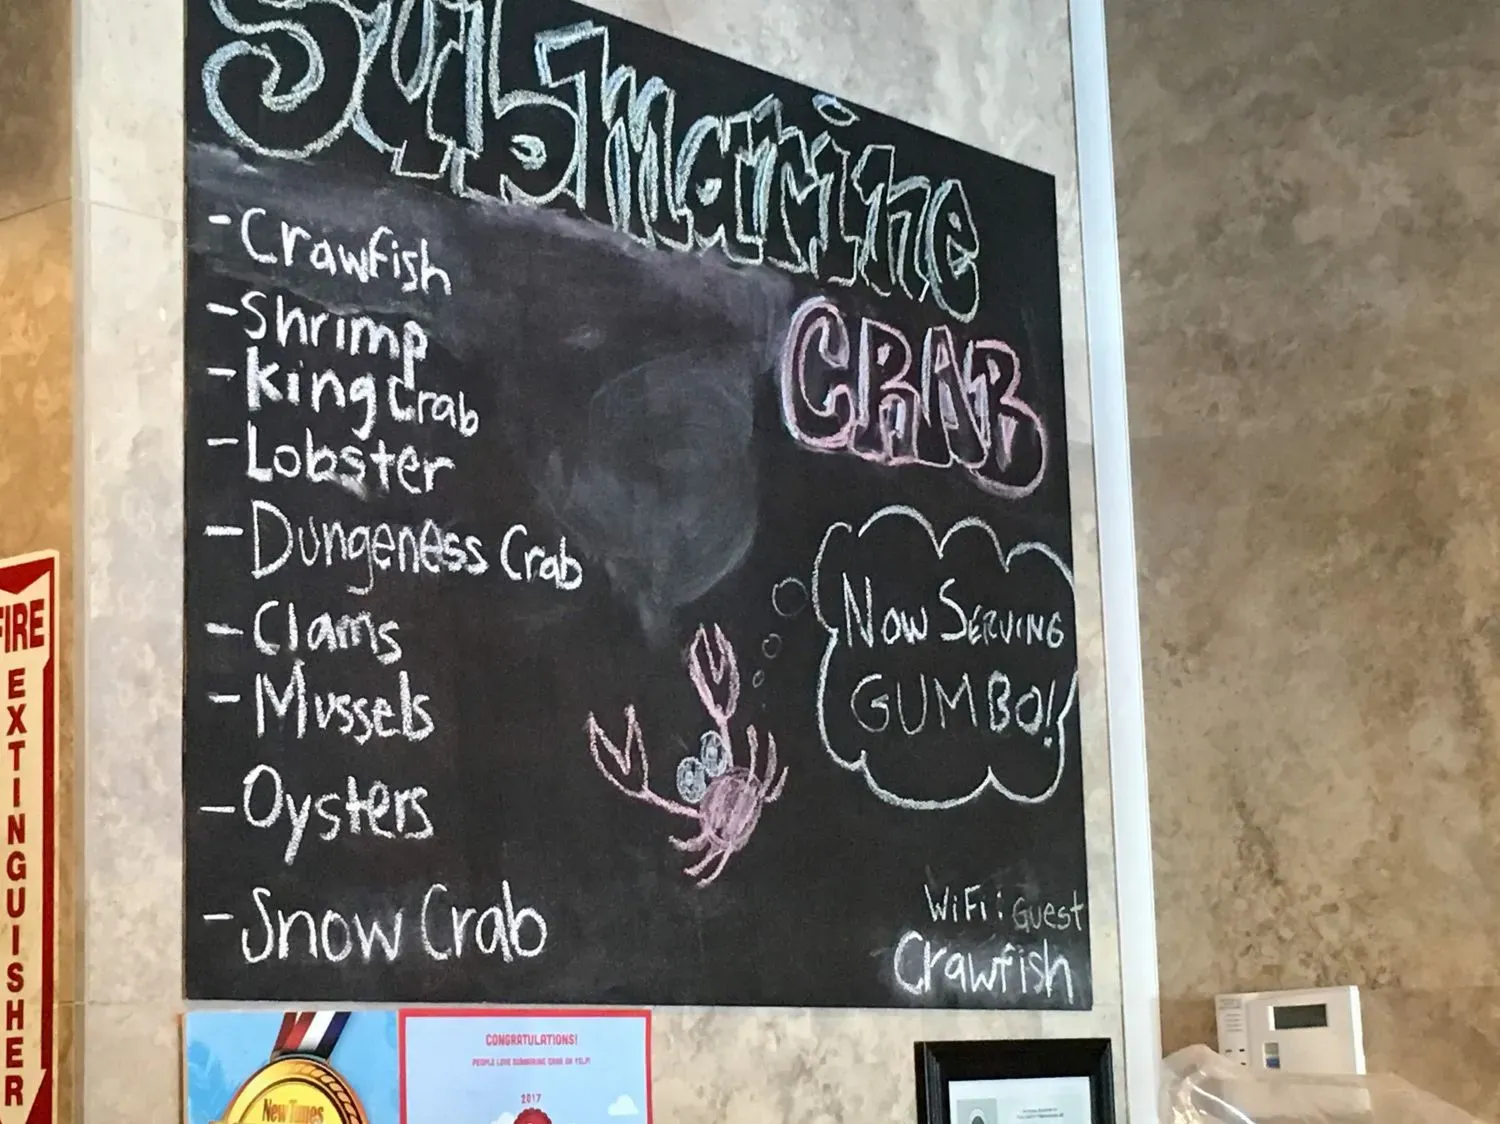 Submarine
CRAB
- Crawfish
- Shrimp
- King Crab
- Lobster
- Dungeness Crab
- Clams
- Mussels
- Oysters
- Snow Crab
NOW SERVING
GUMBO!
WiFi: Guest
Crawfish
FIRE
EXTINGUISHER
New Times
CONGRATULATIONS!
PEOPLE LOVE SUBMARINE CRAB ON YELP!
2017